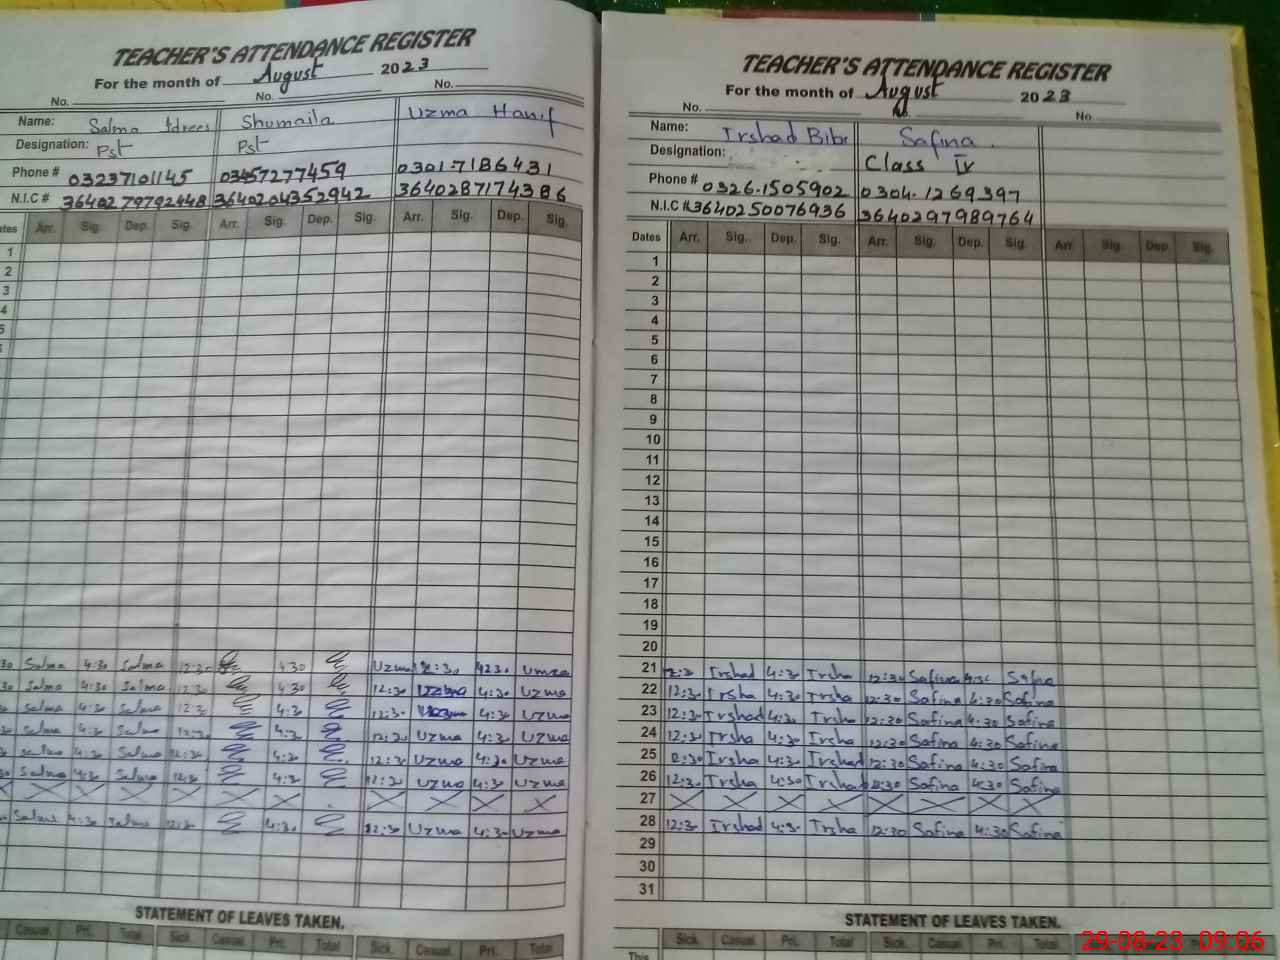 TEACHER'S ATTENDANCE REGISTER
For the month of August 2023
No. No. No.
Name: Salma Idrees Shumaila Uzma Hanif
Designation: Pst Pst
Phone # 03237101145 03457277459 0301-7186431
N.I.C # 3640279792448 3640204352942 3640287174386
ates Arr. Sig. Dep. Sig. Arr. Sig. Dep. Sig. Arr. Sig. Dep. Sig.
1
2
3
4
5
6
30 Salma 4:30 Salma 12:30 4:30 Uzma 12:30 4230 Umza
30 Salma 4:30 Salma 12:30 4:30 12:30 Uzma 4:30 Uzma
30 Salma 4:30 Salma 12:30 4:30 12:30 4:30 Uzma
30 Salma 4:30 Salma 12:30 4:30 12:30 Uzma 4:30 Uzma
30 Salma 4:30 Salma 12:30 4:30 12:30 Uzma 4:30 Uzma
30 Salma 4:30 Salma 12:30 4:30 12:30 Uzma 4:30 Uzma
Salma 4:30 Salma 12:30 4:30 12:30 Uzma 4:30 Uzma
STATEMENT OF LEAVES TAKEN.
Casual. Pri. Total Sick. Casual Pri. Total Sick. Casual. Pri. Total
TEACHER'S ATTENDANCE REGISTER
For the month of August 2023
No. No. No.
Name: Irshad Bibi Safina
Designation: Class IV
Phone # 0326-1505902 0304-1269397
N.I.C # 3640250076936 3640297989764
Dates Arr. Sig. Dep. Sig. Arr. Sig. Dep. Sig. Arr. Sig. Dep. Sig.
1
2
3
4
5
6
7
8
9
10
11
12
13
14
15
16
17
18
19
20
21 Irshad 4:30 Irsha 12:30 Safina 4:30 Safina
22 12:30 Irsha 4:30 Irsha 12:30 Safina 4:30 Safina
23 12:30 Irshad 4:30 Irsha 12:30 Safina 4:30 Safina
24 12:30 Irsha 4:30 Irsha 12:30 Safina 4:30 Safina
25 12:30 Irsha 4:30 Irshad 12:30 Safina 4:30 Safina
26 12:30 Irsha 4:30 Irshad 12:30 Safina 4:30 Safina
27
28 12:30 Irshad 4:30 Irsha 12:30 Safina 4:30 Safina
29
30
31
STATEMENT OF LEAVES TAKEN.
This Sick. Casual. Pri. Total Sick. Casual Pri. Total
29-08-23 09:06